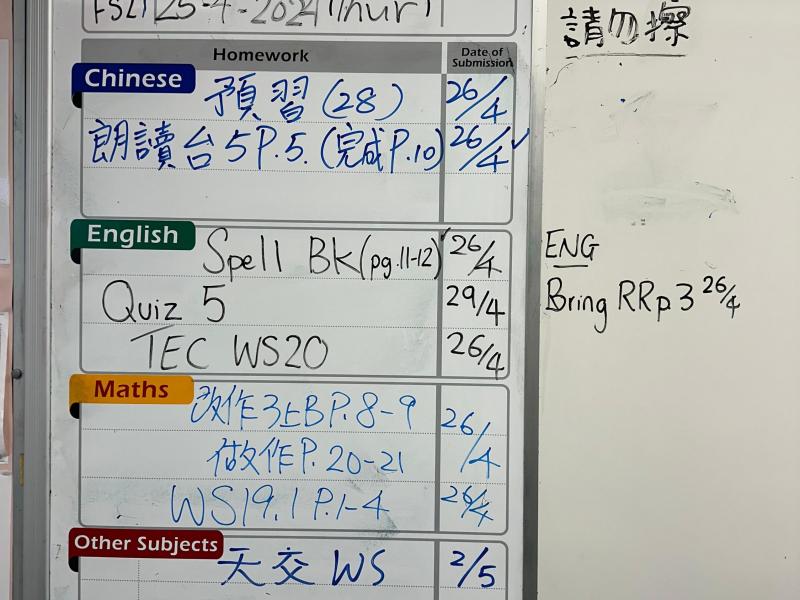 25-4-2024 (Thur)
請勿擦
Homework Date of Submission
Chinese
預習(28) 26/4
朗讀台5P.5.(完成P.10) 26/4✓
English
Spell BK(pg.11-12) 26/4
Quiz 5 29/4
TEC WS20 26/4
ENG
Bring RRp3 26/4
Maths
改作3上BP.8-9 26/4
做作P.20-21
WS19.1 P.1-4 26/4
Other Subjects
天交 WS 2/5